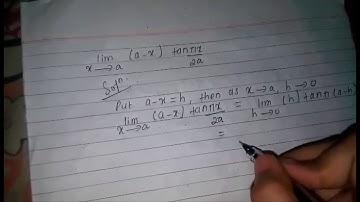 lim (a-x) tan πx/2a
x→a
Solⁿ.
Put a-x=h, then as x→a, h→0
lim (a-x) tan πx/2a = lim (h) tan π (a-h)
x→a h→0
=